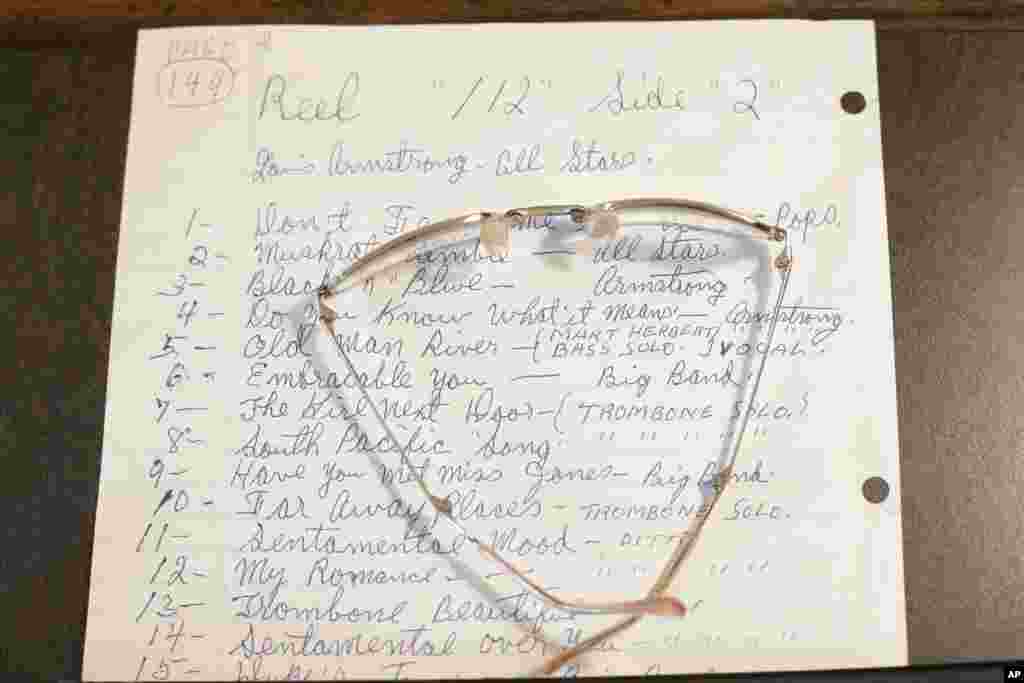 PAGE
149
Reel "112" Side "2"
Louis Armstrong - All Stars.
1- Don't - Pops.
2- Muskrat - All Stars.
3- Black " " Blue - Armstrong
4- Do You Know What it Means - Armstrong.
5- Old Man River - (MART HERBERT) BASS SOLO. VOCAL.
6- Embraceable You - Big Band.
7- The Girl Next Door - (TROMBONE SOLO.)
8- South Pacific Song " " " " "
9- Have You Met Miss Jones - Big Band.
10- Far Away Places - TROMBONE SOLO.
11- Sentamental Mood - DITTO
12- My Romance - - - " " " " "
13- Trombone
14- Sentamental over
15-
AP